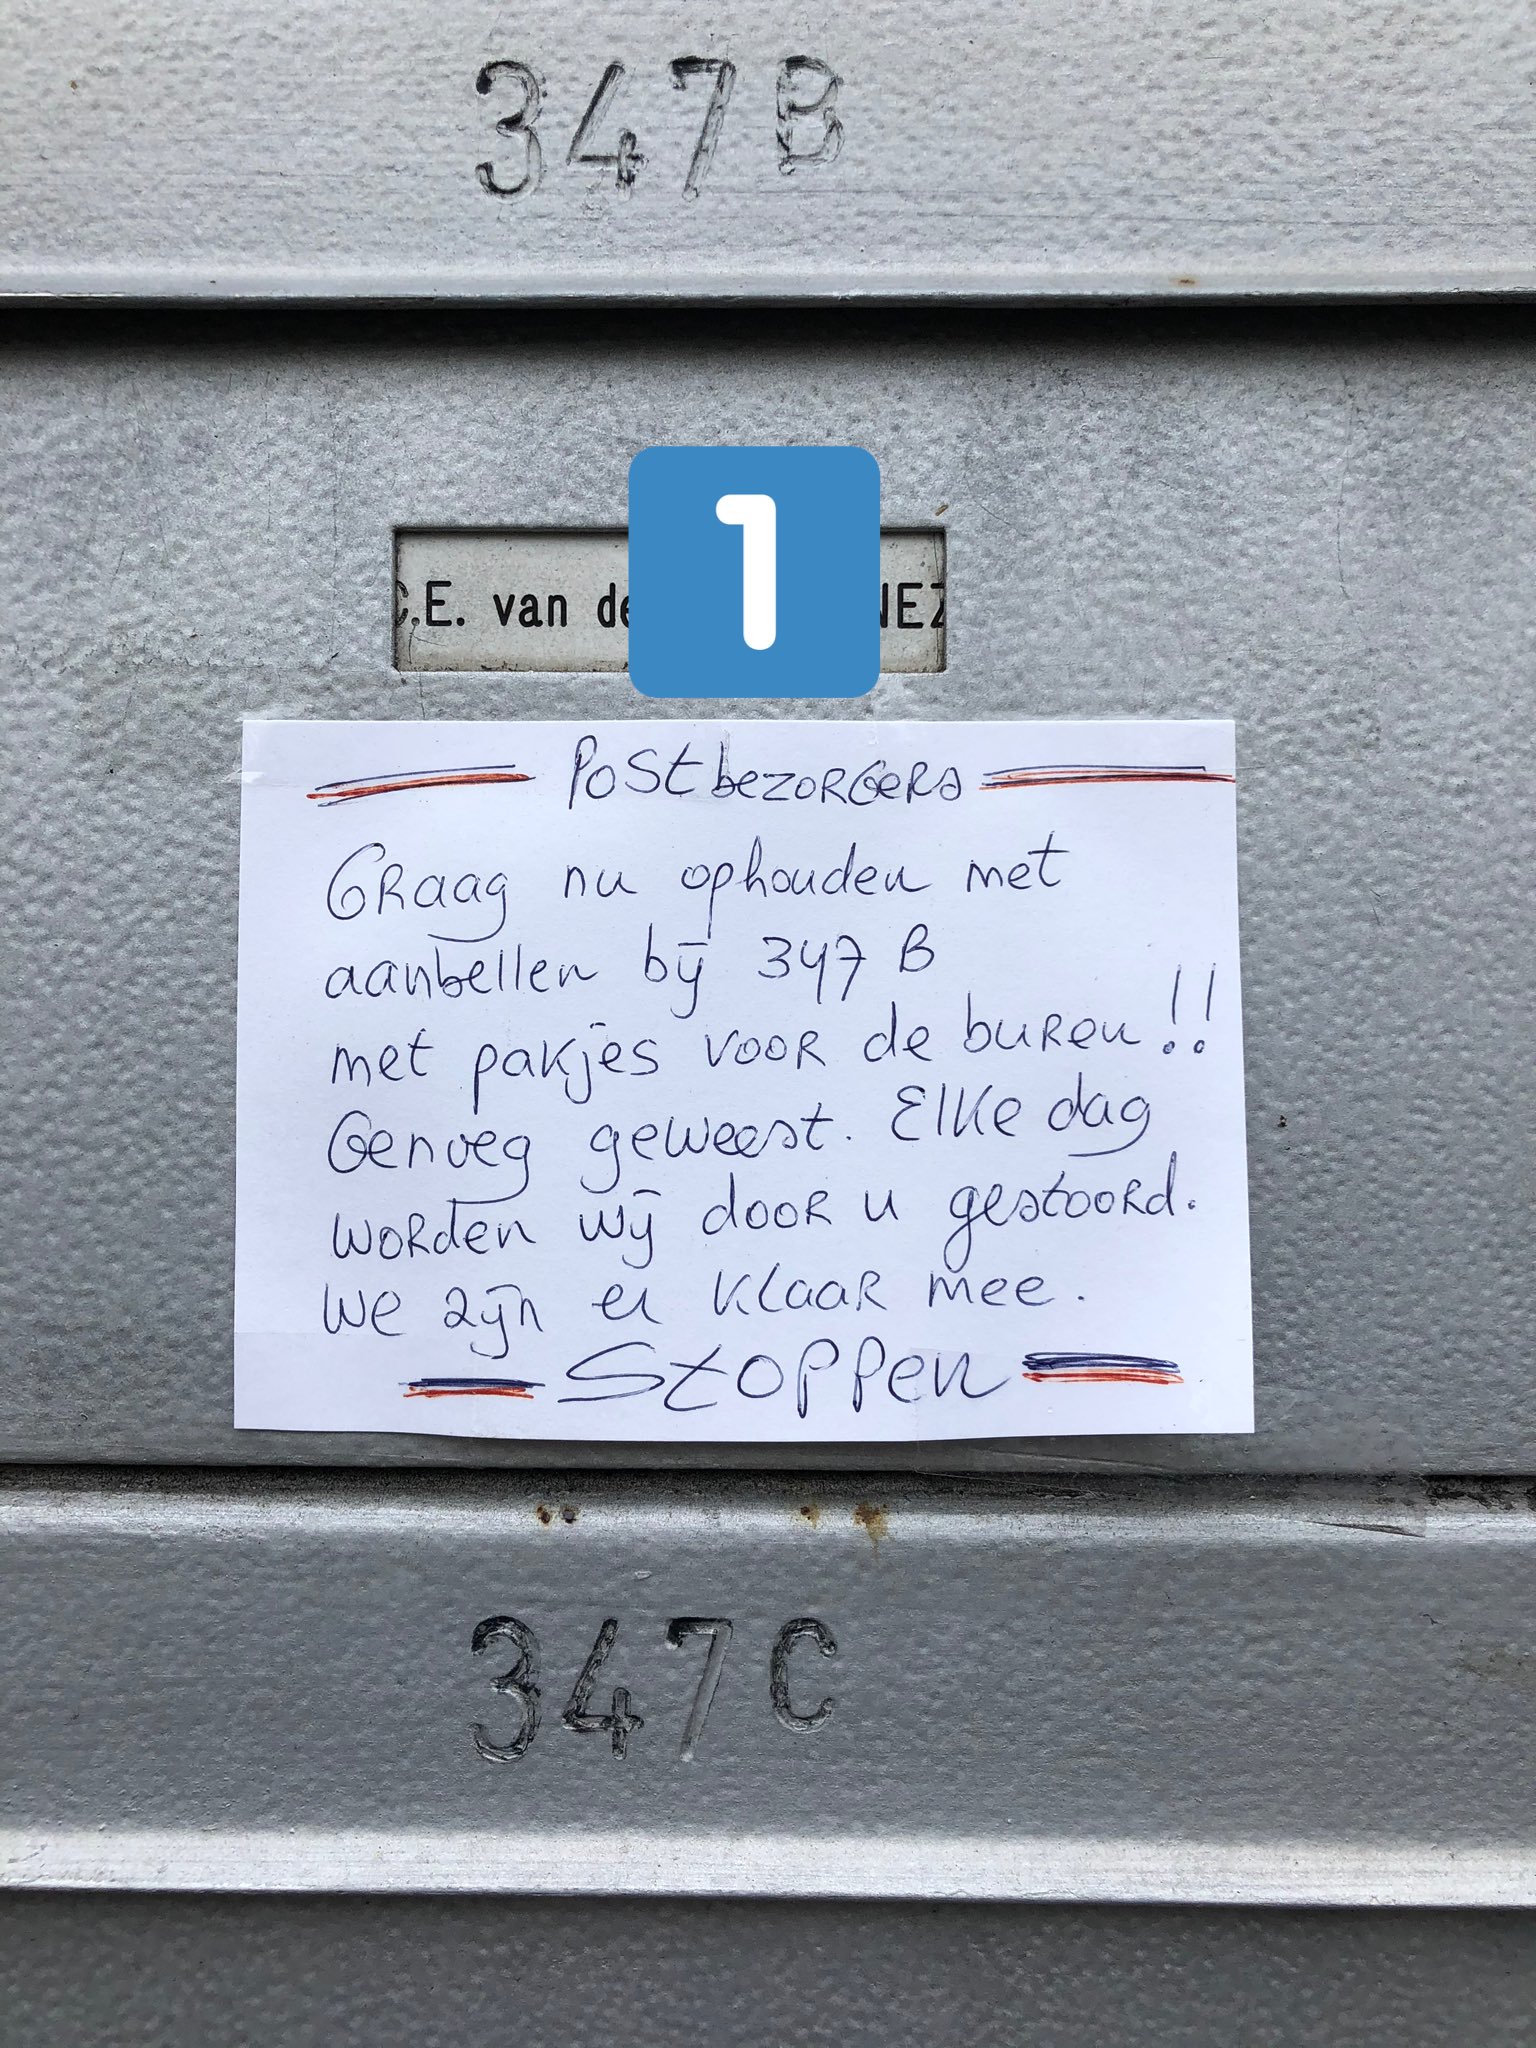 347B
1
C.E. van de NEZ
Postbezorgers
Graag nu ophouden met
aanbellen bij 347 B
met pakjes voor de buren!!
Genoeg geweest. Elke dag
worden wij door u gestoord.
We zijn er klaar mee.
Stoppen
347C